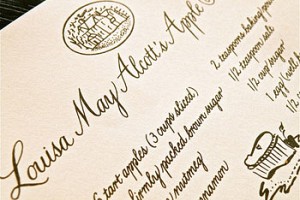 Louisa May Alcott's Apple
6 tart apples (3 cups sliced)
firmly packed brown sugar
nutmeg
cinnamon
2 teaspoons baking
1/2 teaspoon salt
1/2 cup sugar
1 egg (well
1/2